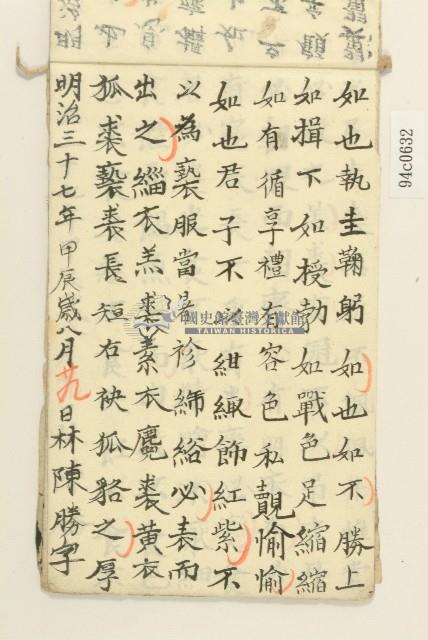 如也執圭鞠躬如也如不勝上
如揖下如授勃如戰色足縮縮
如有循享禮有容色私覿愉愉
如也君子不以紺緅飾紅紫不
以為褻服當暑袗絺綌必表而
出之緇衣羔裘素衣麑裘黃衣
狐裘褻裘長短右袂狐貉之厚
明治三十七年甲辰歲八月廿九日林陳勝字
國史館臺灣文獻館
TAIWAN HISTORICA
94c0632